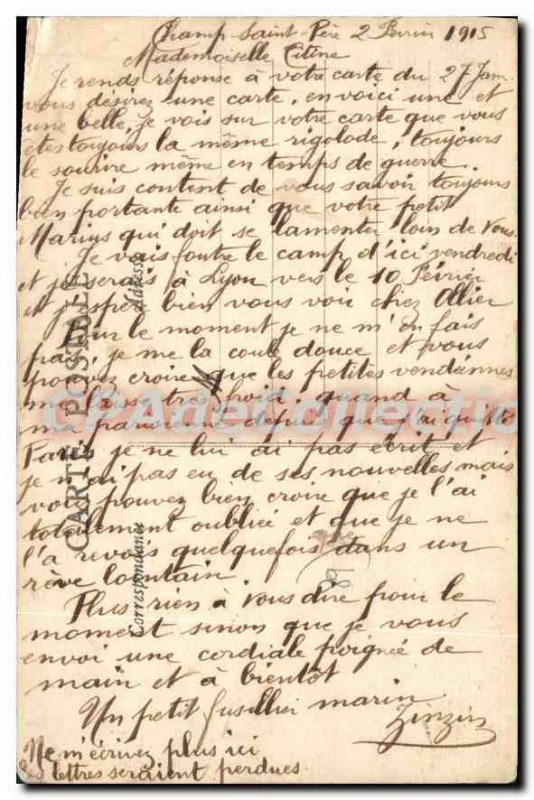 Champ-Saint-Père 2 Février 1915
Mademoiselle Titine
Je rends réponse à votre carte du 27 Janv.
vous désirez une carte, en voici une et
une belle, je vois sur votre carte que vous
êtes toujours la même rigolade, toujours
le sourire même en temps de guerre.
Je suis content de vous savoir toujours
bien portante ainsi que votre petit
Marius qui doit se lamenter loin de vous.
Je vais foutre le camp d'ici vendredi
et je serais à Lyon vers le 10 Février
et j'espère bien vous voir chez Ollier
Pour le moment je ne m'en fais
pas, je me la coule douce et vous
pouvez croire que les petites vendéennes
me très froid, quand à
ma parisienne depuis que j'ai quitté
Paris je ne lui ai pas écrit et
je n'ai pas eu de ses nouvelles mais
vous pouvez bien croire que je l'ai
totalement oubliée et que je ne
l'a revois quelquefois dans un
rêve lointain.
Plus rien à vous dire pour le
moment sinon que je vous
envoi une cordiale poignée de
main et à bientôt
Un petit fusillier marin
Zinzin
Ne m'écrivez plus ici
les lettres seraient perdues.
CARTE POSTALE
Correspondance
Adresse
CPAdeCollection.com